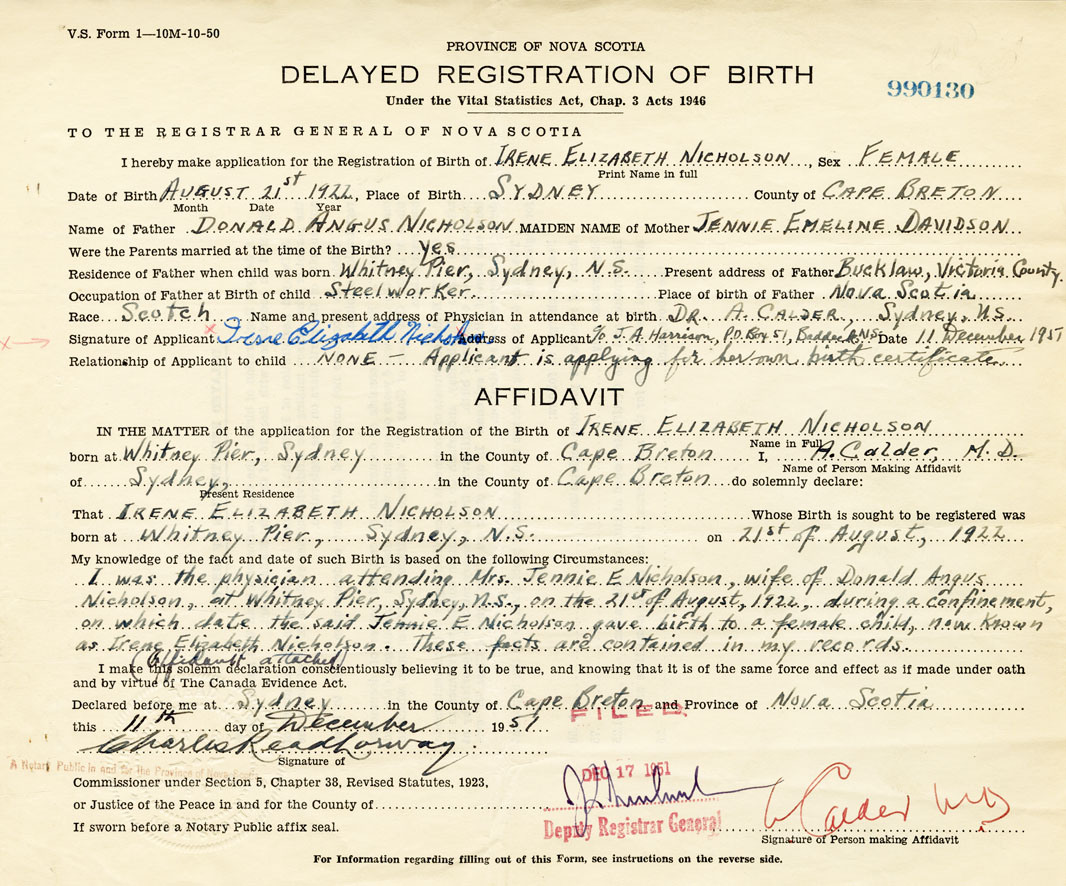 V.S. Form 1—10M-10-50
PROVINCE OF NOVA SCOTIA
DELAYED REGISTRATION OF BIRTH
990130
Under the Vital Statistics Act, Chap. 3 Acts 1946
TO THE REGISTRAR GENERAL OF NOVA SCOTIA
I hereby make application for the Registration of Birth of IRENE ELIZABETH NICHOLSON, Sex FEMALE
Print Name in full
Date of Birth AUGUST 21st 1922, Place of Birth SYDNEY County of CAPE BRETON
Month Date Year
Name of Father DONALD ANGUS NICHOLSON MAIDEN NAME of Mother JENNIE EMELINE DAVIDSON
Were the Parents married at the time of the Birth? Yes
Residence of Father when child was born Whitney Pier, Sydney, N.S. Present address of Father Bucklaw, Victoria County.
Occupation of Father at Birth of child Steelworker. Place of birth of Father Nova Scotia
Race Scotch Name and present address of Physician in attendance at birth DR. A. CALDER, Sydney, N.S.
Signature of Applicant Irene Elizabeth Nicholson Address of Applicant c/o J.A. Harrison, P.O. Box 51, Baddeck, N.S. Date 11 December 1951
Relationship of Applicant to child NONE - Applicant is applying for her own birth certificate.
AFFIDAVIT
IN THE MATTER of the application for the Registration of the Birth of IRENE ELIZABETH NICHOLSON
Name in Full
born at Whitney Pier, Sydney in the County of Cape Breton I, A. Calder, M.D.
Name of Person Making Affidavit
of Sydney, in the County of Cape Breton do solemnly declare:
Present Residence
That IRENE ELIZABETH NICHOLSON Whose Birth is sought to be registered was
born at Whitney Pier, Sydney, N.S. on 21st of August, 1922
My knowledge of the fact and date of such Birth is based on the following Circumstances:
I was the physician attending Mrs. Jennie E Nicholson, wife of Donald Angus
Nicholson, at Whitney Pier, Sydney, N.S., on the 21st of August, 1922, during a confinement,
on which date the said Jennie E. Nicholson gave birth to a female child, now known
as Irene Elizabeth Nicholson. These facts are contained in my records.
(Affidavit attached)
I make this solemn declaration conscientiously believing it to be true, and knowing that it is of the same force and effect as if made under oath
and by virtue of The Canada Evidence Act.
Declared before me at Sydney in the County of Cape Breton and Province of Nova Scotia
this 11th day of December 1951
FILED
Charles Read Lorway
Signature of
A Notary Public in and for the Province of Nova Scotia
DEC 17 1951
Commissioner under Section 5, Chapter 38, Revised Statutes, 1923,
or Justice of the Peace in and for the County of
Deputy Registrar General
A Calder MD
If sworn before a Notary Public affix seal.
Signature of Person making Affidavit
For Information regarding filling out of this Form, see instructions on the reverse side.